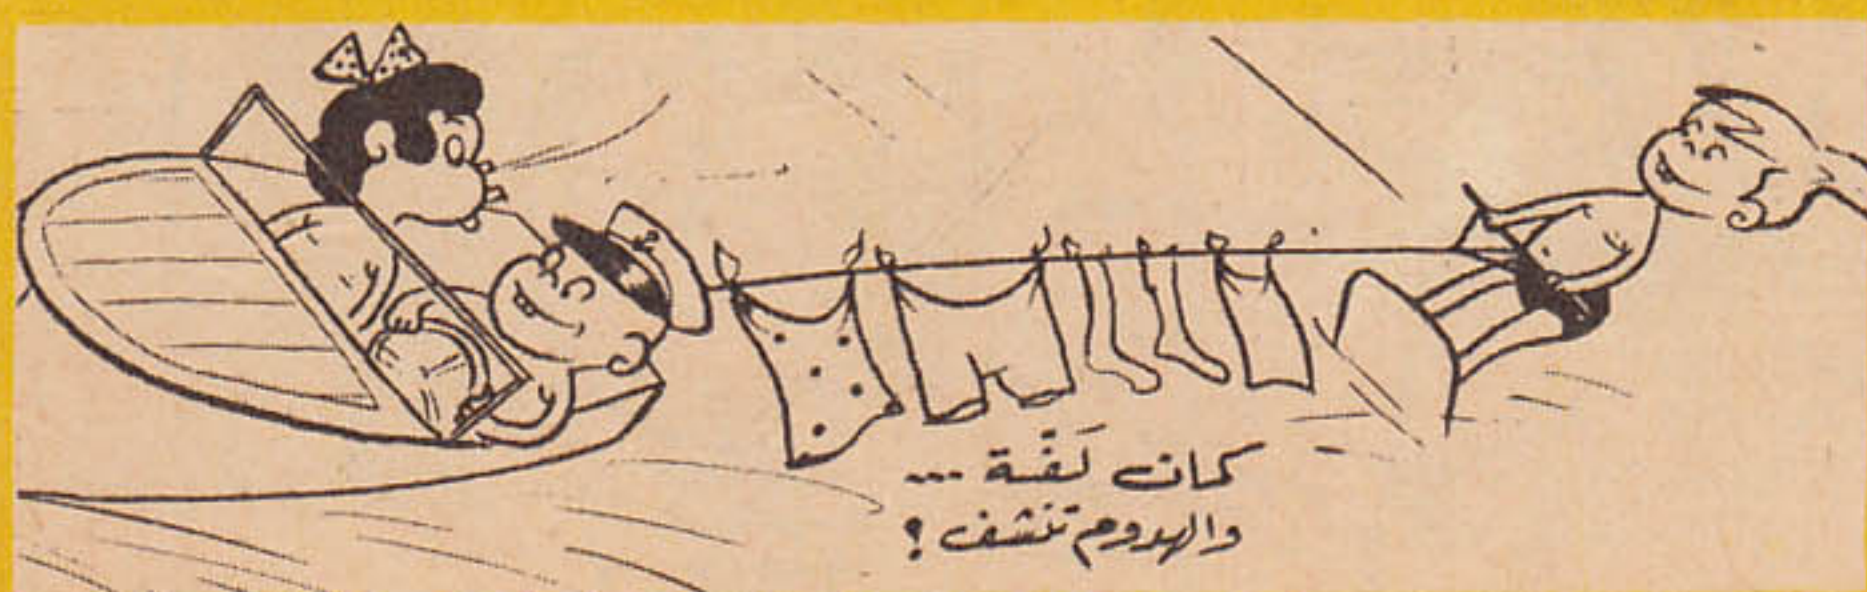 كمان لَفّة ...
والهدوم تنشف ؟